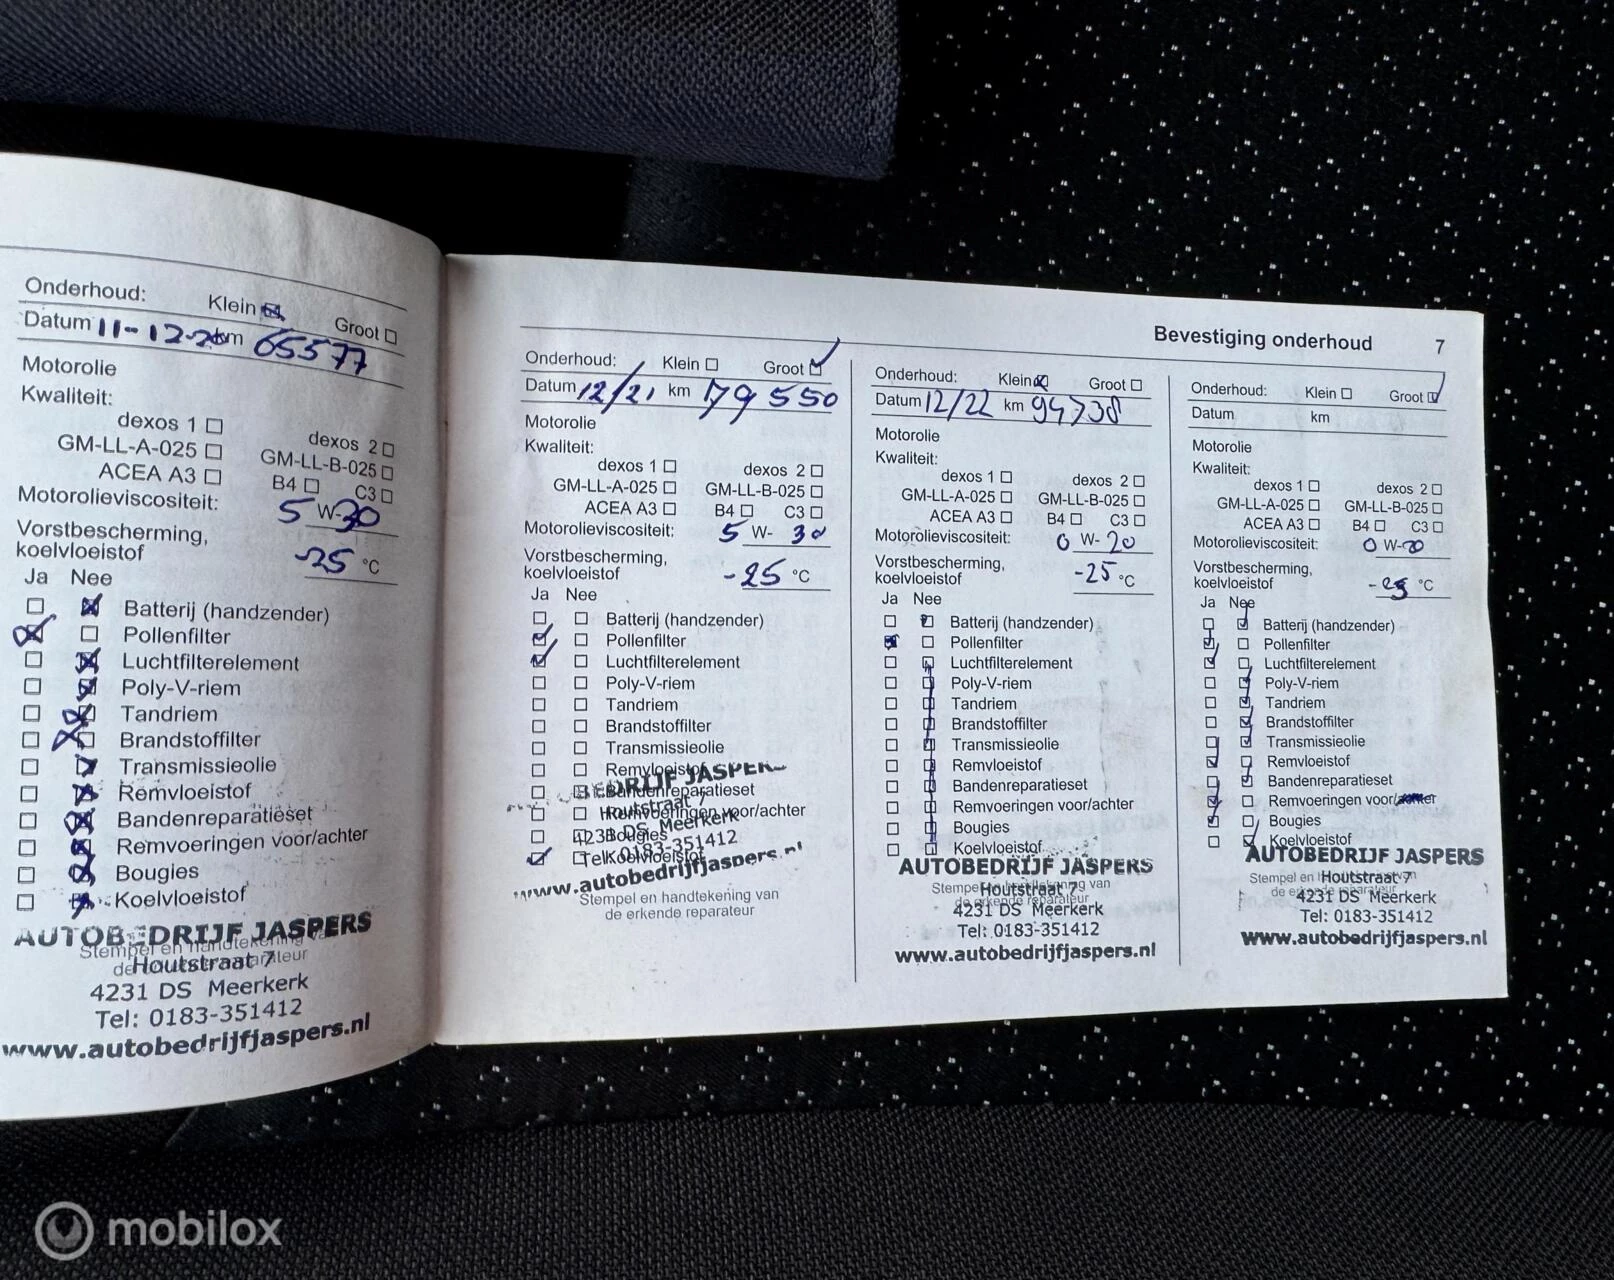 Onderhoud: Klein Groot
Datum 11-12-20 km 65577
Motorolie
Kwaliteit:
dexos 1 dexos 2
GM-LL-A-025 GM-LL-B-025
ACEA A3 B4 C3
Motorolieviscositeit: 5 W-30
Vorstbescherming,
koelvloeistof -25 °C
Ja Nee
Batterij (handzender)
Pollenfilter
Luchtfilterelement
Poly-V-riem
Tandriem
Brandstoffilter
Transmissieolie
Remvloeistof
Bandenreparatieset
Remvoeringen voor/achter
Bougies
Koelvloeistof
AUTOBEDRIJF JASPERS
Stempel en handtekening van
Houtstraat 7
4231 DS Meerkerk
Tel: 0183-351412
www.autobedrijfjaspers.nl
Bevestiging onderhoud 7
Onderhoud: Klein Groot
Datum 12/21 km 79 550
Motorolie
Kwaliteit:
dexos 1 dexos 2
GM-LL-A-025 GM-LL-B-025
ACEA A3 B4 C3
Motorolieviscositeit: 5 W- 30
Vorstbescherming,
koelvloeistof -25 °C
Ja Nee
Batterij (handzender)
Pollenfilter
Luchtfilterelement
Poly-V-riem
Tandriem
Brandstoffilter
Transmissieolie
Remvloeistof
BEDRIJF JASPERS
Bandenreparatieset
Houtstraat 7
Remvoeringen voor/achter
4231 DS Meerkerk
Bougies
Tel: 0183-351412
Koelvloeistof
www.autobedrijfjaspers.nl
Stempel en handtekening van
de erkende reparateur
Onderhoud: Klein Groot
Datum 12/22 km 94738
Motorolie
Kwaliteit:
dexos 1 dexos 2
GM-LL-A-025 GM-LL-B-025
ACEA A3 B4 C3
Motorolieviscositeit: 0 W- 20
Vorstbescherming,
koelvloeistof -25 °C
Ja Nee
Batterij (handzender)
Pollenfilter
Luchtfilterelement
Poly-V-riem
Tandriem
Brandstoffilter
Transmissieolie
Remvloeistof
Bandenreparatieset
Remvoeringen voor/achter
Bougies
Koelvloeistof
AUTOBEDRIJF JASPERS
Stempel en handtekening van
Houtstraat 7
de erkende reparateur
4231 DS Meerkerk
Tel: 0183-351412
www.autobedrijfjaspers.nl
Onderhoud: Klein Groot
Datum km
Motorolie
Kwaliteit:
dexos 1 dexos 2
GM-LL-A-025 GM-LL-B-025
ACEA A3 B4 C3
Motorolieviscositeit: 0 W-20
Vorstbescherming,
koelvloeistof -25 °C
Ja Nee
Batterij (handzender)
Pollenfilter
Luchtfilterelement
Poly-V-riem
Tandriem
Brandstoffilter
Transmissieolie
Remvloeistof
Bandenreparatieset
Remvoeringen voor/achter
Bougies
Koelvloeistof
AUTOBEDRIJF JASPERS
Stempel en handtekening van
Houtstraat 7
de erkende reparateur
4231 DS Meerkerk
Tel: 0183-351412
www.autobedrijfjaspers.nl
mobilox